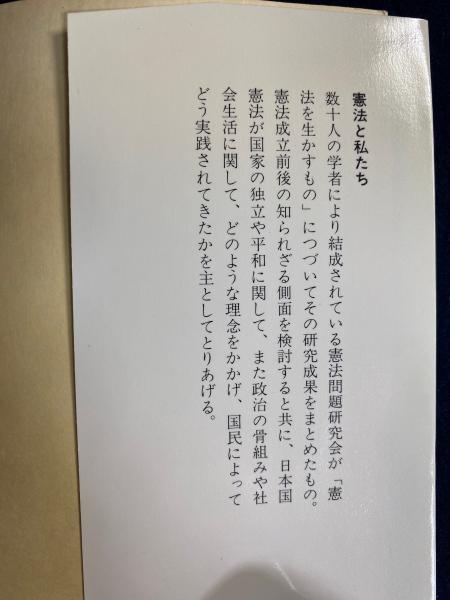 憲法と私たち
数十人の学者により結成されている憲法問題研究会が「憲
法を生かすもの」につづいてその研究成果をまとめたもの。
憲法成立前後の知られざる側面を検討すると共に、日本国
憲法が国家の独立や平和に関して、また政治の骨組みや社
会生活に関して、どのような理念をかかげ、国民によって
どう実践されてきたかを主としてとりあげる。